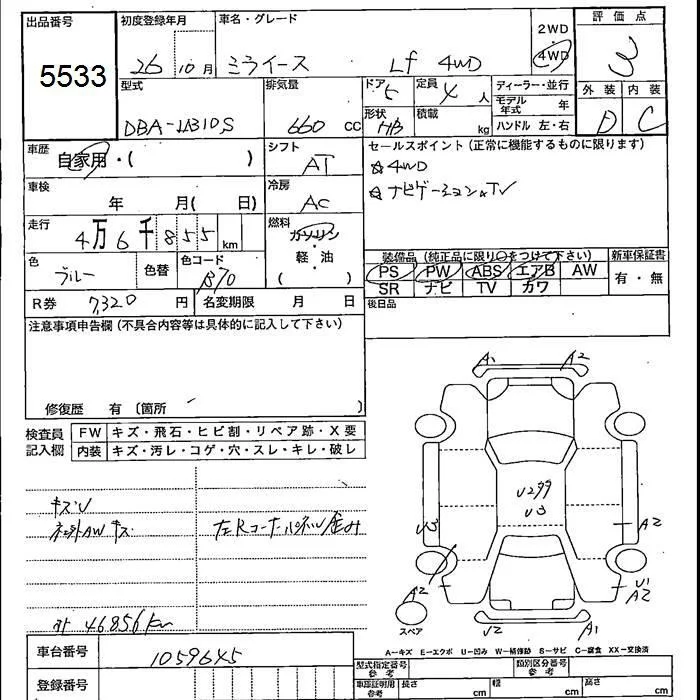 出品番号 初度登録年月 車名・グレード 2WD 評価点
5533 26 10月 ミライース Lf 4WD 4WD 3
型式 排気量 ドア 定員 ディーラー・並行 外装 内装
DBA-LA310S 660 cc 5 4人 モデル年式 年 D C
形状 HB 積載 kg ハンドル 左・右
車歴 自家用・( ) シフト AT セールスポイント(正常に機能するものに限ります)
☆4WD
車検 年 月( 日) 冷房 AC ☆ナビゲーション☆TV
走行 4万6千855km 燃料 ガソリン・軽油 ( )
色 ブルー 色替 色コード B70 装備品(純正品に限り○をつけて下さい) 新車保証書
PS PW ABS エアB AW 有・無
SR ナビ TV カワ
R券 7,320円 名変期限 月 日 後日品
注意事項申告欄(不具合内容等は具体的に記入して下さい)
修復歴 有〔箇所 〕
検査員記入欄 FW キズ・飛石・ヒビ割・リペア跡・X要
内装 キズ・汚レ・コゲ・穴・スレ・キレ・破レ
A1 A2
キズU
AWキズ 左Rコーナーパネル歪み
U299
U3
U3 A2
A2 U1
A2
スペア U2 A1
計 46856km
A−キズ E−エクボ U−凹み W−補修跡 S−サビ C−腐食 XX−交換済
車台番号 1059645 型式指定番号 参考 類別区分番号 参考
登録番号 車部証明用 参考 長さ cm 幅 cm 高さ cm